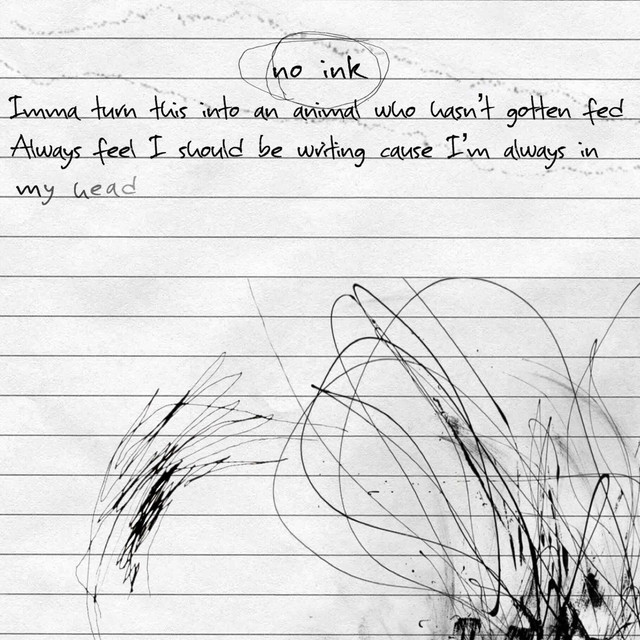 no ink
Imma turn this into an animal who hasn't gotten fed
Always feel I should be writing cause I'm always in
my head